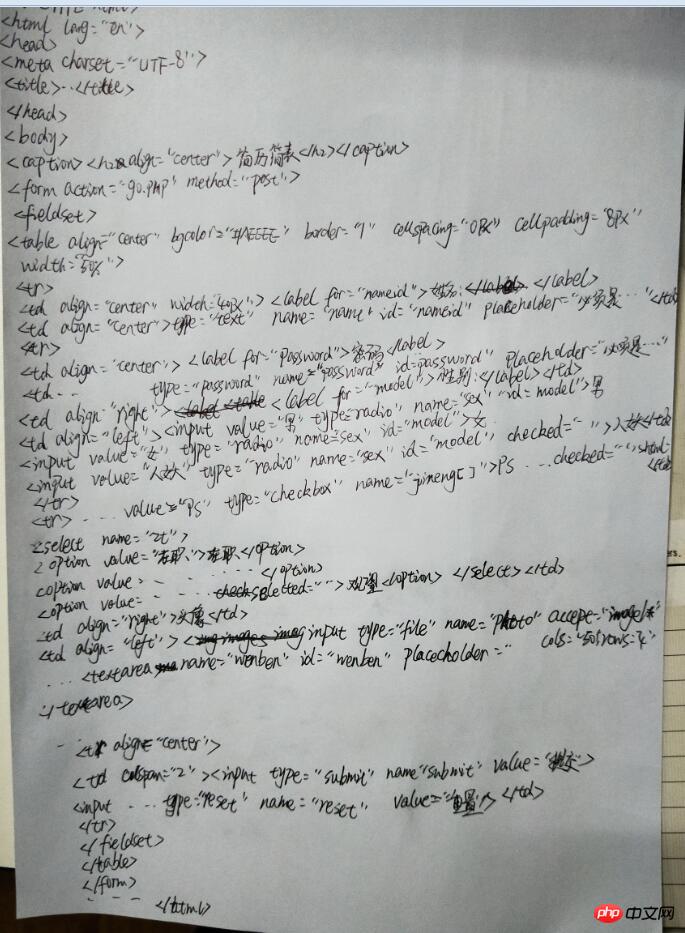 <html lang="en">
<head>
<meta charset="UTF-8">
<title>...</title>
</head>
<body>
<caption><h2 align="center">简历简表</h2></caption>
<form action="go.php" method="post">
<fieldset>
<table align="center" bgcolor="#AEEEEE" border="1" cellspacing="0px" cellpadding="8px"
width="50%">
<tr>
<td align="center" width="40px"><label for="nameid">姓名:</label>
<td align="center">type="text" name="name" id="nameid" placeholder="必须是..."</td>
<tr>
<td align="center"><label for="password">密码</label>
<td... type="password" name="password" id=password" placeholder="必须是..."
<td align="right"><label for="model">性别:</label></td>
<td align="left"><input value="男" type=radio" name="sex" id="model">男
<input value="女" type="radio" name=sex" id="model">女..
<input value="人妖" type="radio" name="sex" id="model" checked="">人妖</td>
</tr>
<tr>.... value="PS" type="checkbox" name="jineng[]">PS ...checked="">
<td>
<select name="zt">
<option value="在职、">在职</option>
<option value=.. ......</option>
<option value=.. selected="">观望<option></select></td>
<td align="right">头像</td>
<td align="left"><input type="file" name="photo" accept="image/*
...<textarea name="wenben" id="wenben" placecholder="" cols="50"rows="4"
</textarea>
..<tr align="center">
<td colspan="2"><input type="submit" name"submit" value="提交">
<input ... type="reset" name="reset" value="重置"/></td>
</tr>
</fieldset>
</table>
</form>
.... </html>
php 中文网